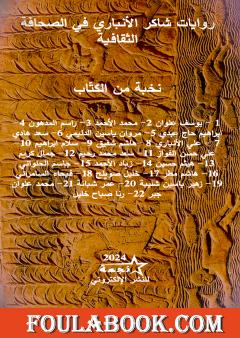 روايات شاكر الأنباري في الصحافة
الثقافية
نخبة من الكتّاب
1 - يوسف علوان 2- محمد الأحمد 3- راسم المدهون 4
ابراهيم حاج عبدي 5- مروان ياسين الدليمي 6- سعد هادي
7 - علي الأنباري 8- هاشم شفيق 9- سلام ابراهيم 10
علي حسن الفواز 11- سعد محمد رحيم 12- جمال كريم
13- هيثم حسين 14- زياد الأحمد 15- جاسم الحلواني
16- هاشم مطر 17- خليل صويلح 18- فيحاء السامرائي
19- زهير ياسين شليبة 20- عمر شبانة 21- محمد علوان
جبر 22- رنا صباح خليل
2024
نجمة
للنشر الإلكتروني
FOULABOOK.COM